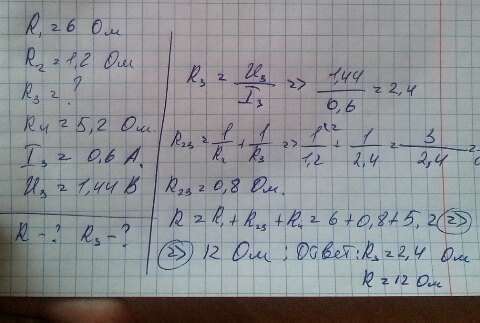 R₁ = 6 Ом
R₂ = 1,2 Ом
R₃ = ?
R₄ = 5,2 Ом.
I₃ = 0,6 А.
U₃ = 1,44 В
R - ? R₃ - ?
R₃ = U₃/I₃ => 1,44/0,6 = 2,4
R₂₃ = 1/R₂ + 1/R₃ => 1/1,2 + 1/2,4 = 3/2,4 =
R₂₃ = 0,8 Ом.
R = R₁ + R₂₃ + R₄ = 6 + 0,8 + 5,2 =>
=> 12 Ом ; Ответ: R₃ = 2,4 Ом
R = 12 Ом